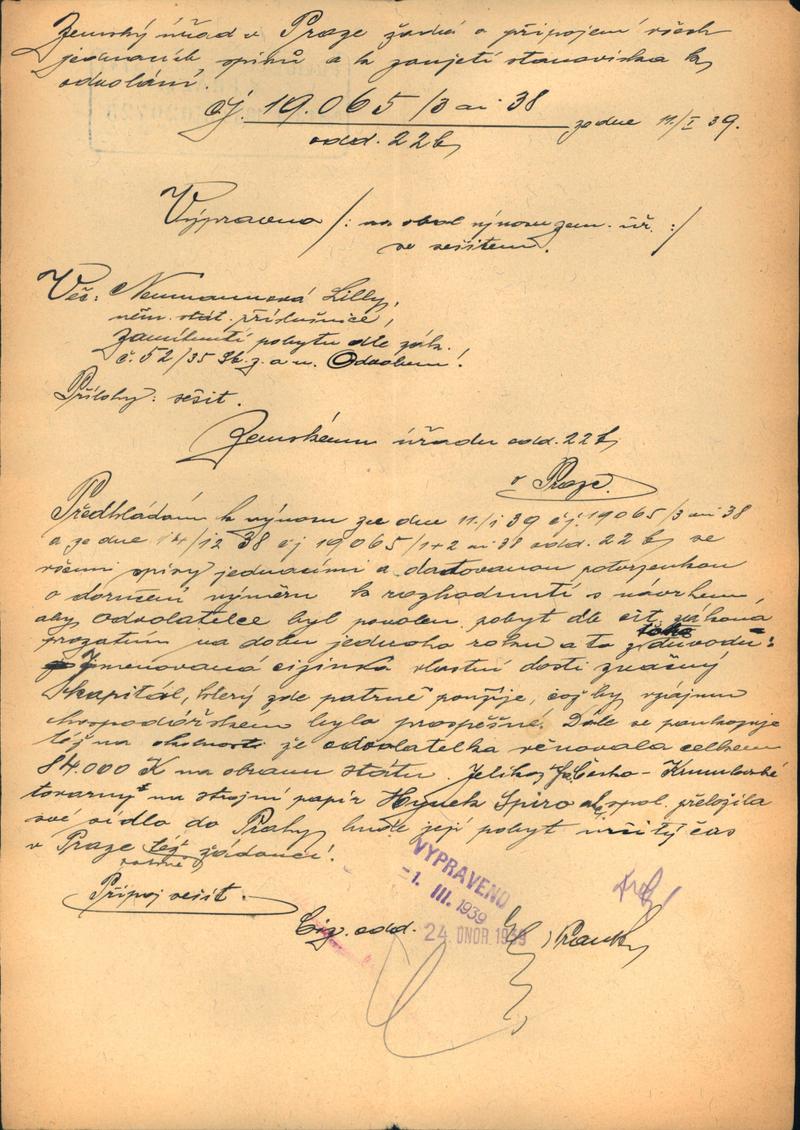 Zemský úřad v Praze žádá o připojení všech
jednacích spisů a k zaujetí stanoviska k
odvolání.
čj. 19.065/3 ai 38 ze dne 11/I 39.
odd. 22b
Výpravna /: na obal výnosu zem. úř. :/
se sešitem.
Věc: Neumannová Lilly,
něm. stát. příslušnice,
zamítnutí pobytu dle zák.
č. 52/35 Sb. z. a n. Odvolání.
Přílohy: sešit.
Zemskému úřadu odd. 22b
v Praze.
Předkládám k výnosu ze dne 11/I 39 čj. 19065/3 ai 38
a ze dne 14/12 38 čj 19065/1+2 ai 38 odd. 22b se
všemi spisy jednacími a datovanou potvrzenkou
o doručení výměru k rozhodnutí s návrhem,
aby odvolatelce byl povolen pobyt dle cit. zákona
prozatím na dobu jednoho roku a to z důvodu:
Jmenovaná cizinka vlastní dosti značný
kapitál, který zde patrně použije, což by zájmům
hospodářským bylo prospěšné. Dále se poukazuje
též na okolnost že odvolatelka věnovala celkem
84.000 K na obranu státu. Jelikož Česko-Krumlovské
továrny na strojní papír Hynek Spiro a spol. přeložila
své sídlo do Prahy bude její pobyt určitý čas
v Praze též žádoucí.
Připoj sešit.
VYPRAVENO
-1. III. 1939
Ciz. odd.
24. ÚNOR 1939